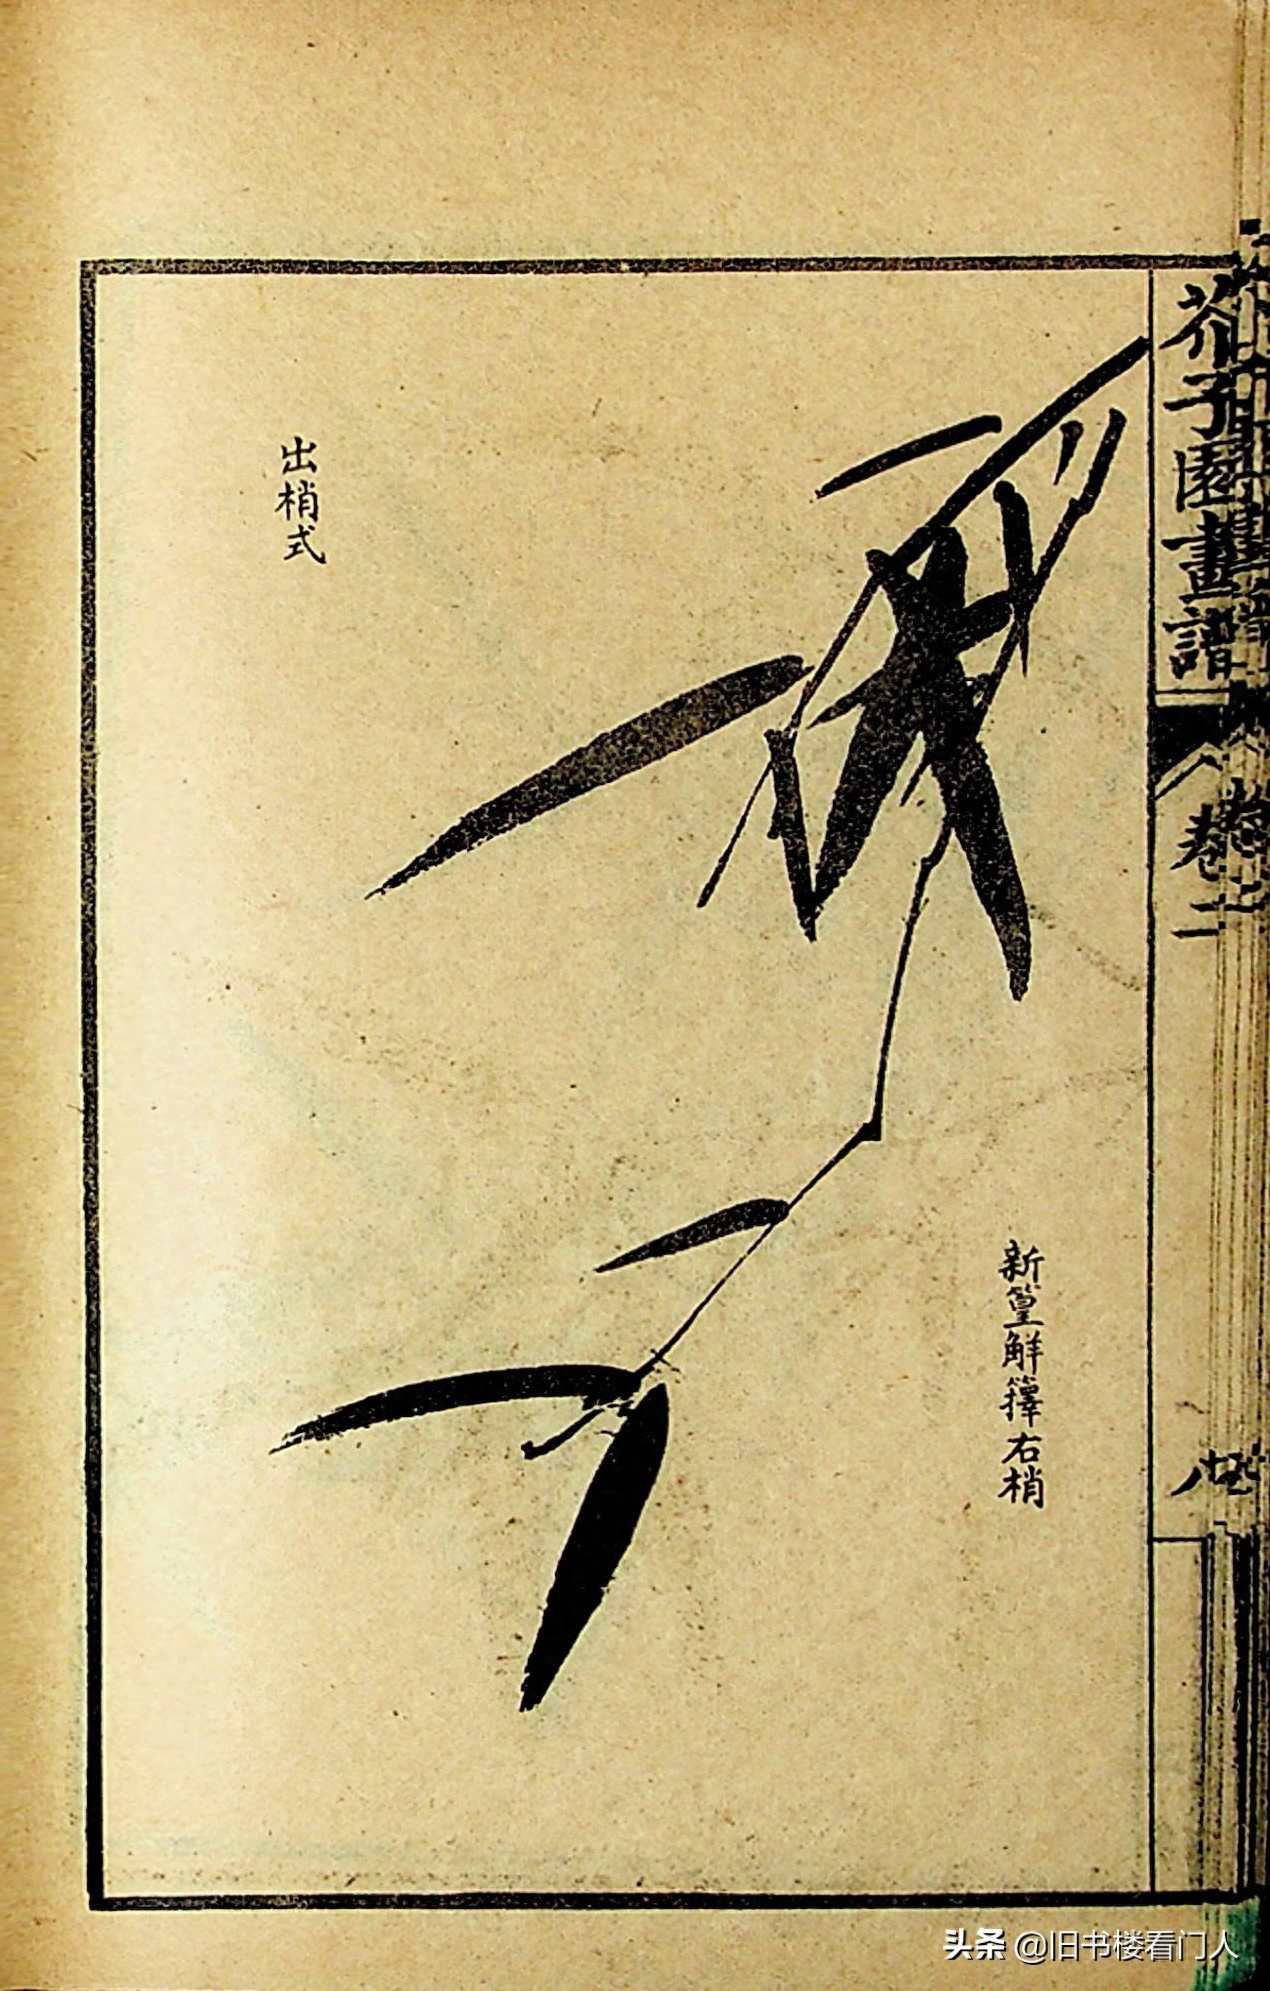 芥子園畫譜
卷二
新篁解籜右梢
出梢式
头条 @旧书楼看门人